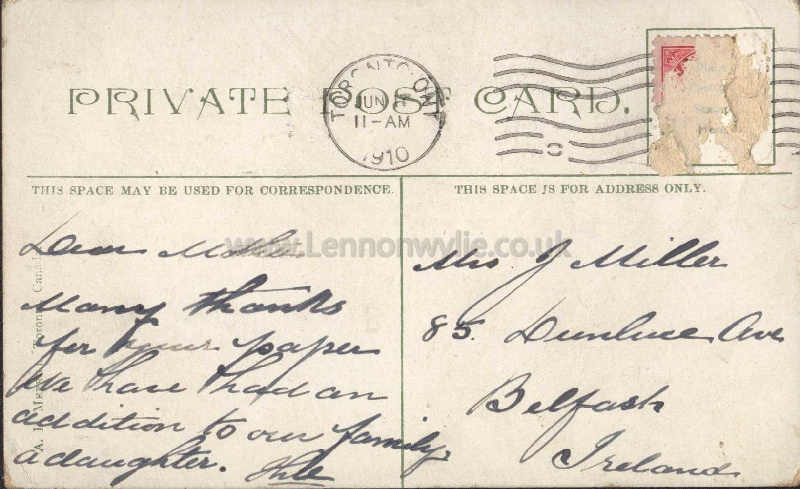 TORONTO, ONT
JUN
11-AM
1910
PRIVATE POST CARD.
THIS SPACE MAY BE USED FOR CORRESPONDENCE.
THIS SPACE IS FOR ADDRESS ONLY.
www.Lennonwylie.co.uk
Dear Mother
Many thanks
for your paper
We have had an
addition to our family,
a daughter.
Mrs J Miller
85. Dunluce Ave
Belfast
Ireland